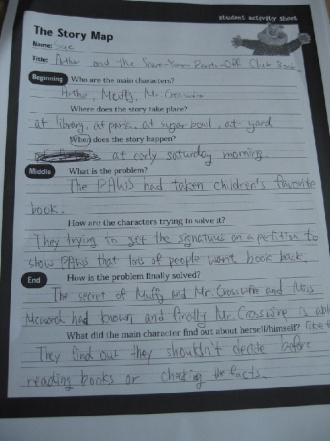 student activity sheet
The Story Map
Name: Sue
Title: Arthur and the Scare-Your-Pants-Off Club Book.
Beginning Who are the main characters?
Arthur, Muffy, Mr. Crosswire
Where does the story take place?
at library, at park, at sugar bowl, at yard
When does the story happen?
at early saturday morning.
Middle What is the problem?
The PAWS had taken children's favorite
book.
How are the characters trying to solve it?
They trying to get the signatures on a petition to
show PAWS that lots of people want book back.
End How is the problem finally solved?
The secret of Muffy and Mr. Crosswire and Miss
had known and finally Mr. Crosswire is
What did the main character find out about herself/himself?
They find out they shouldn't decide before
reading books or checking the facts.